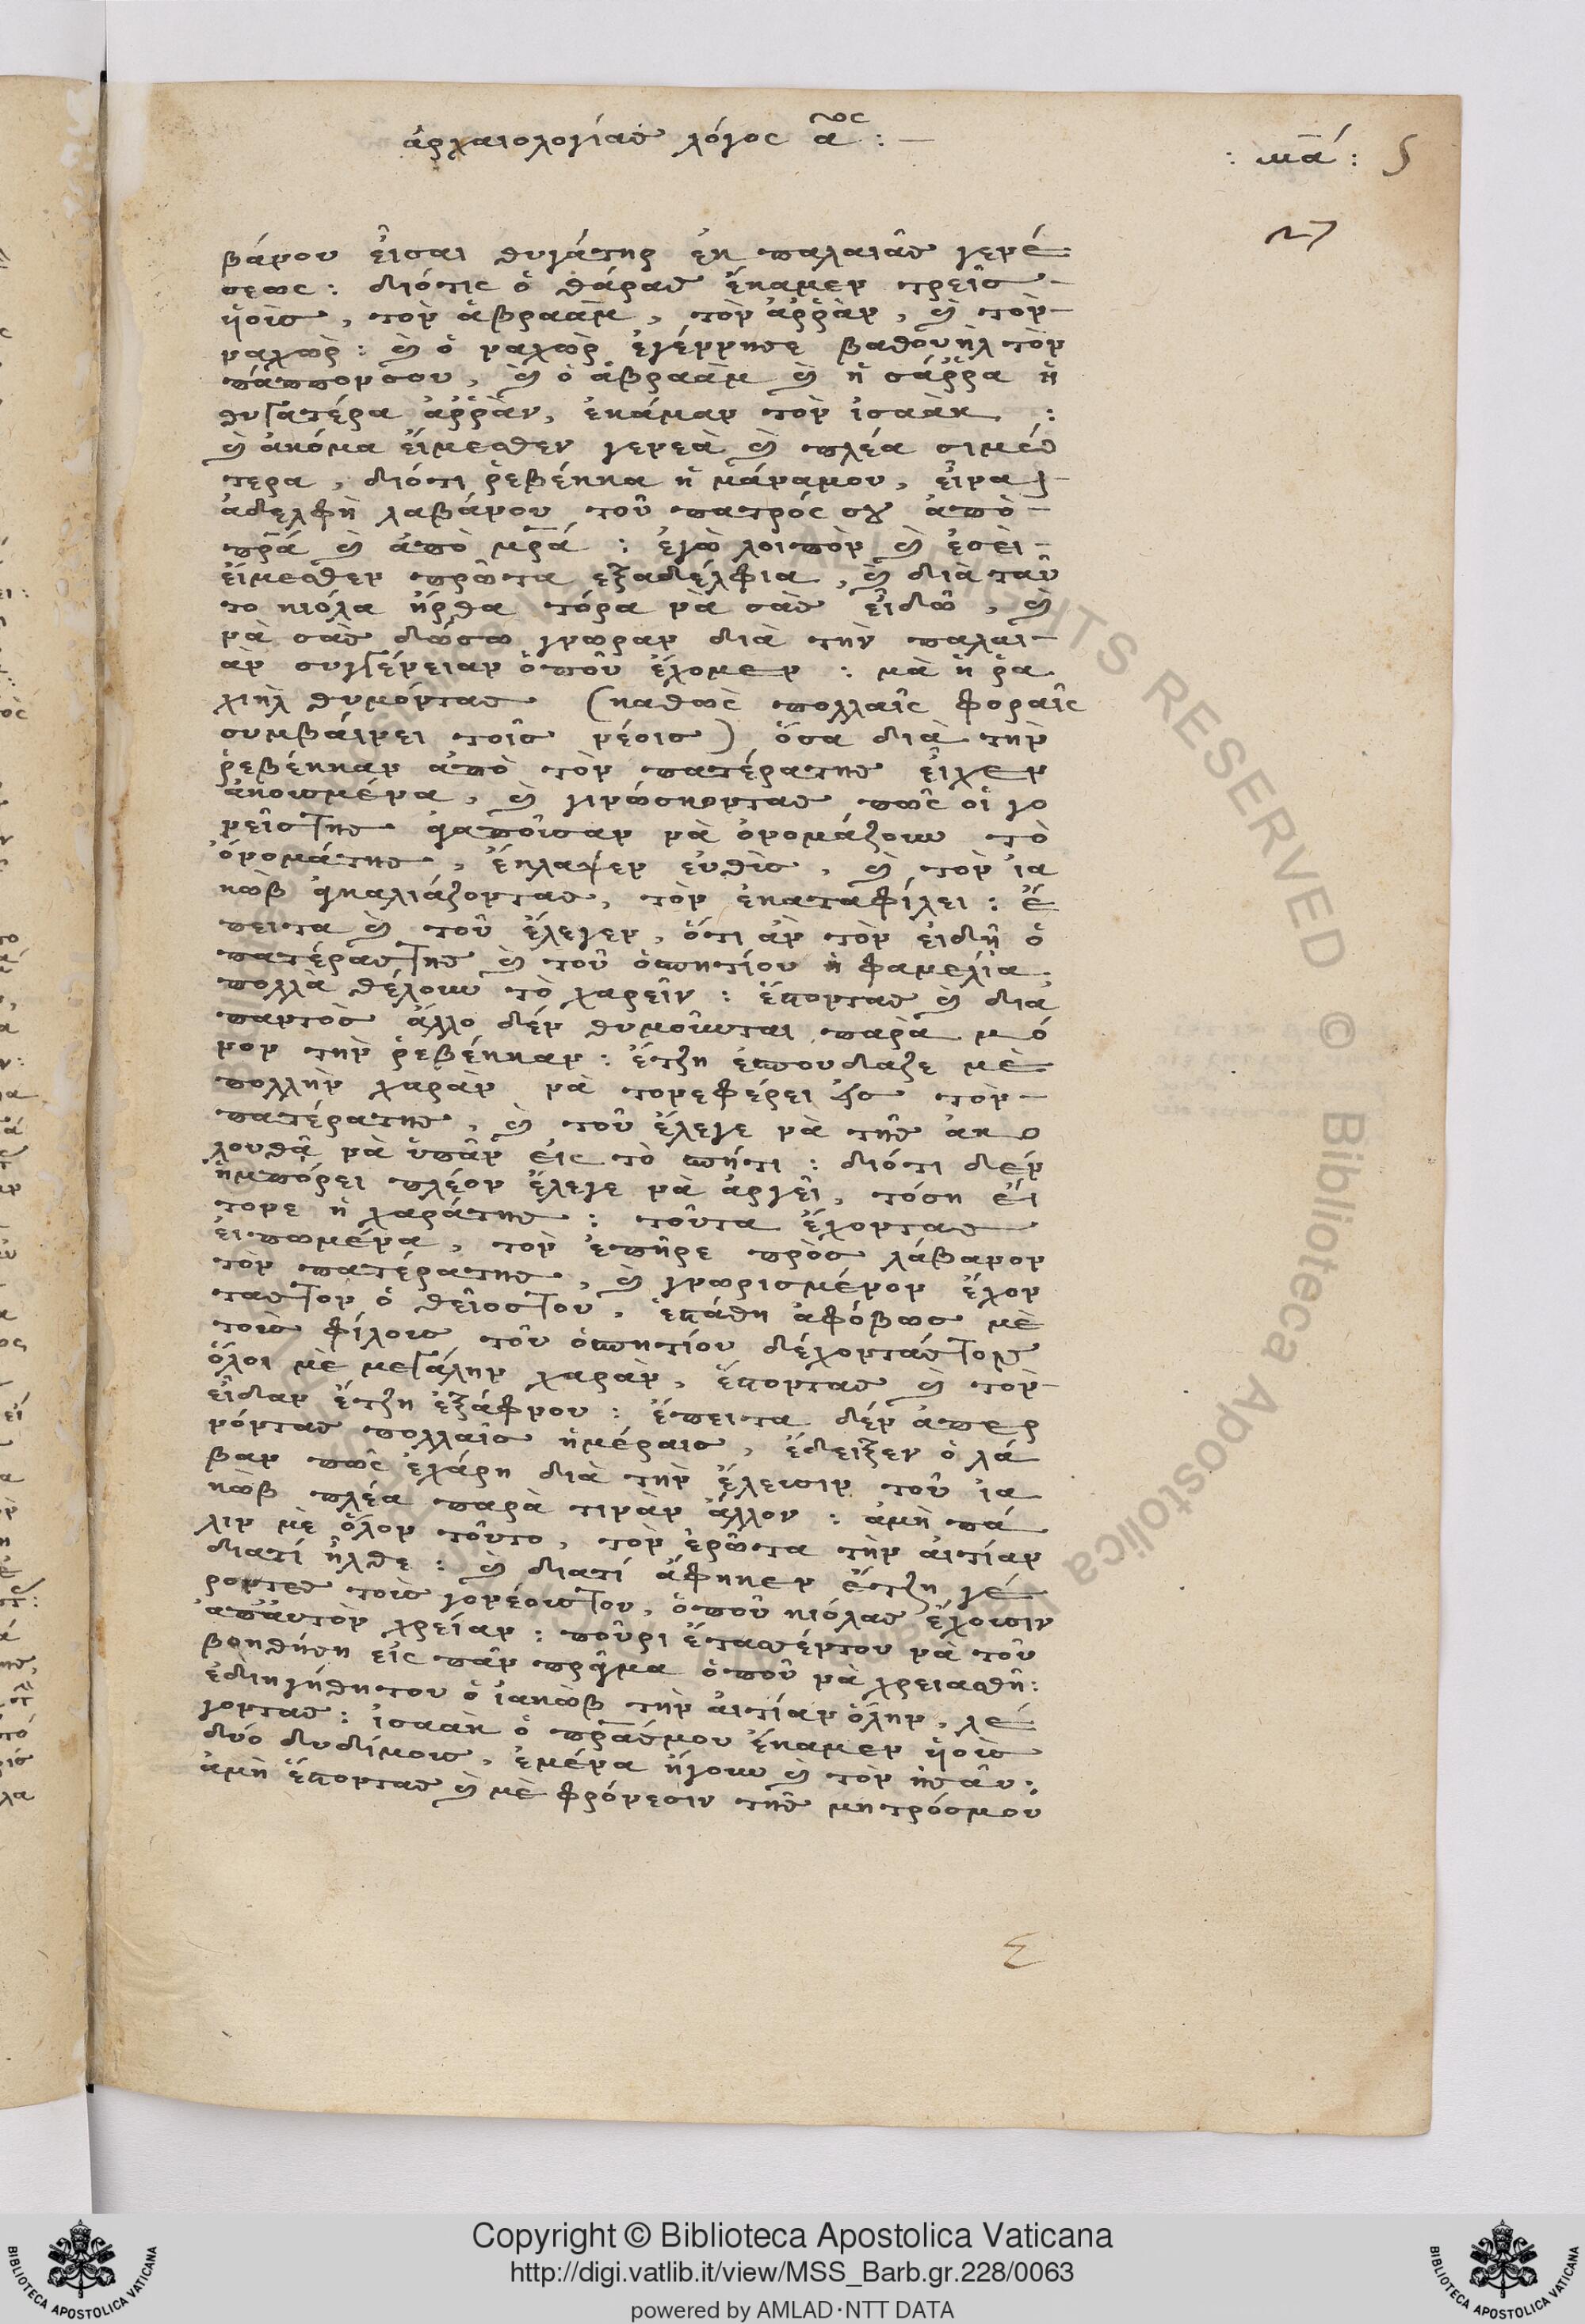 ἀρχαιολογίας λόγος α^ος :—
: μά :
βάνου εἶσαι θυγάτηρ ἐκ παλαιᾶς γενέ
σεως : διότις ὁ θάρας ἔκαμεν τρεῖσ
ϋοὶσ, τὸν ἀβραὰμ, τὸν ἀρρὰν, ϗ τὸν
ναχὼρ : ϗ ὁ ναχὼρ ἐγέννησε βαθουὴλ τὸν
πάππονσου, ϗ ὁ ἀβραὰμ ϗ ἡ σάρρα ἡ
θυγατέρα ἀρρὰν, ἐκάμαν τὸν ἰσαὰκ :
ϗ ἀκόμα εἴμεσθεν γενεὰ ϗ πλέα σιμό
τερα, διότι ῥεβέκκα ἡ μάναμου, εἶναι
ἀδελφὴ λαβάνου τοῦ πατρός σου ἀπὸ
πρα ϗ ἀπὸ μρα : ἐγὼ λοιπὸν ϗ ἐσεὶ
εἴμεσθεν πρῶτα ἐξαδέλφια, ϗ διὰ ταῦ
το κιόλα ἦρθα τόρα νὰ σὰς εἰδῶ, ϗ
νὰ σὰς δώσω γνωραν διὰ τὴν παλαι
ὰν συγγένειαν ὁποῦ ἔχομεν : μὰ ἡ ῥα
χιὴλ θυμόντας (καθὼς πολλαῖς φοραῖς
συμβαίνει τοῖσ νέοισ) ὅσα διὰ τὴν
ῥεβέκκαν ἀπὸ τὸν πατέρατης εἶχεν
ἀκουσμένα, ϗ γινώσκοντας πῶς οἱ γο
νεῖστης ἀγαποῦσαν νὰ ὀνομάζουν τὸ
ὄνομάτης, ἔκλαψεν εὐθὺσ, ϗ τὸν ἰα
κὼβ ἀγκαλιάζοντας, τὸν ἐκαταφίλει : ἔ
πειτα ϗ τοῦ ἔλεγεν, ὅτι ἂν τὸν εἰδῆ ὁ
πατέραστης ϗ τοῦ ὁσπητίου ἡ φαμελία
πολλὰ θέλουν τὸ χαρεῖν : ἔσοντας ϗ δια
παντὸσ ἄλλο δὲν θυμοῦνται, παρὰ μό
νον τὴν ῥεβέκκαν : ἔτζη ἐσπουδαζε μὲ
πολλὴν χαρὰν νὰ τονεφέρει εἰσ τὸν
πατέρατης, ϗ τοῦ ἔλεγε νὰ τῆς ἀκο
λουθᾶ νὰ ὑπᾶν εἰς τὸ σπήτι : διότι δὲν
ἡμπόρει πλέον ἔλεγε νὰ ἀργεῖ, τόση εἶ
τονε ἡ χαράτης : τοῦτα ἔχοντας
εἰπωμένα, τὸν ἐπῆρε πρὸσ λάβανον
τὸν πατέρατης, ϗ γνωρισμένον ἔχον
ταστον ὁ θεῖοστου, ἐστάθη ἀφόβωσ μὲ
τοὺσ φίλουσ τοῦ ὁσπητίου δέχοντάστον
ὅλοι μὲ μεγάλην χαρὰν, ἔσοντας ϗ τὸν
εἶδαν ἔτζη ἐξάφνου : ἔπειτα δὲν ἀπερ
νόντας πολλαῖσ ἡμέραισ, ἔδειξεν ὁ λά
βαν πῶς ἐχάρη διὰ τὴν ἔλευσιν τοῦ ἰα
κὼβ πλέα παρὰ τινὰν ἄλλον : ἀμὴ πά
λιν μὲ ὅλον τοῦτο, τὸν ἐρῶτα τὴν αἰτίαν
διατί ἦλθε : ϗ διατί ἄφηκεν ἔτζη γέ
ροντες τοὺσ γονέουστου, ὁποῦ κιόλας ἔχουσιν
ἀπαυτὸν χρείαν : ποῦρι ἔτασέντου νὰ τοῦ
βοηθήση εἰς πᾶν πρᾶγμα ὁποῦ νὰ χρειασθῆ:
ἐδιηγήθητου ὁ ἰακὼβ τὴν αἰτίαν ὅλην, λέ
γοντας : ἰσαὰκ ὁ πρασμου ἔκαμεν ϋοὺσ
δυὸ δυδίμουσ, ἐμένα ἤγουν ϗ τὸν ἠσαῦ :
ἀμὴ ἔσοντας ϗ μὲ φρόνεσιν τῆς μητρόσμου
Copyright © Biblioteca Apostolica Vaticana
http://digi.vatlib.it/view/MSS_Barb.gr.228/0063
powered by AMLAD·NTT DATA
BIBLIOTECA APOSTOLICA VATICANA
BIBLIOTECA APOSTOLICA VATICANA